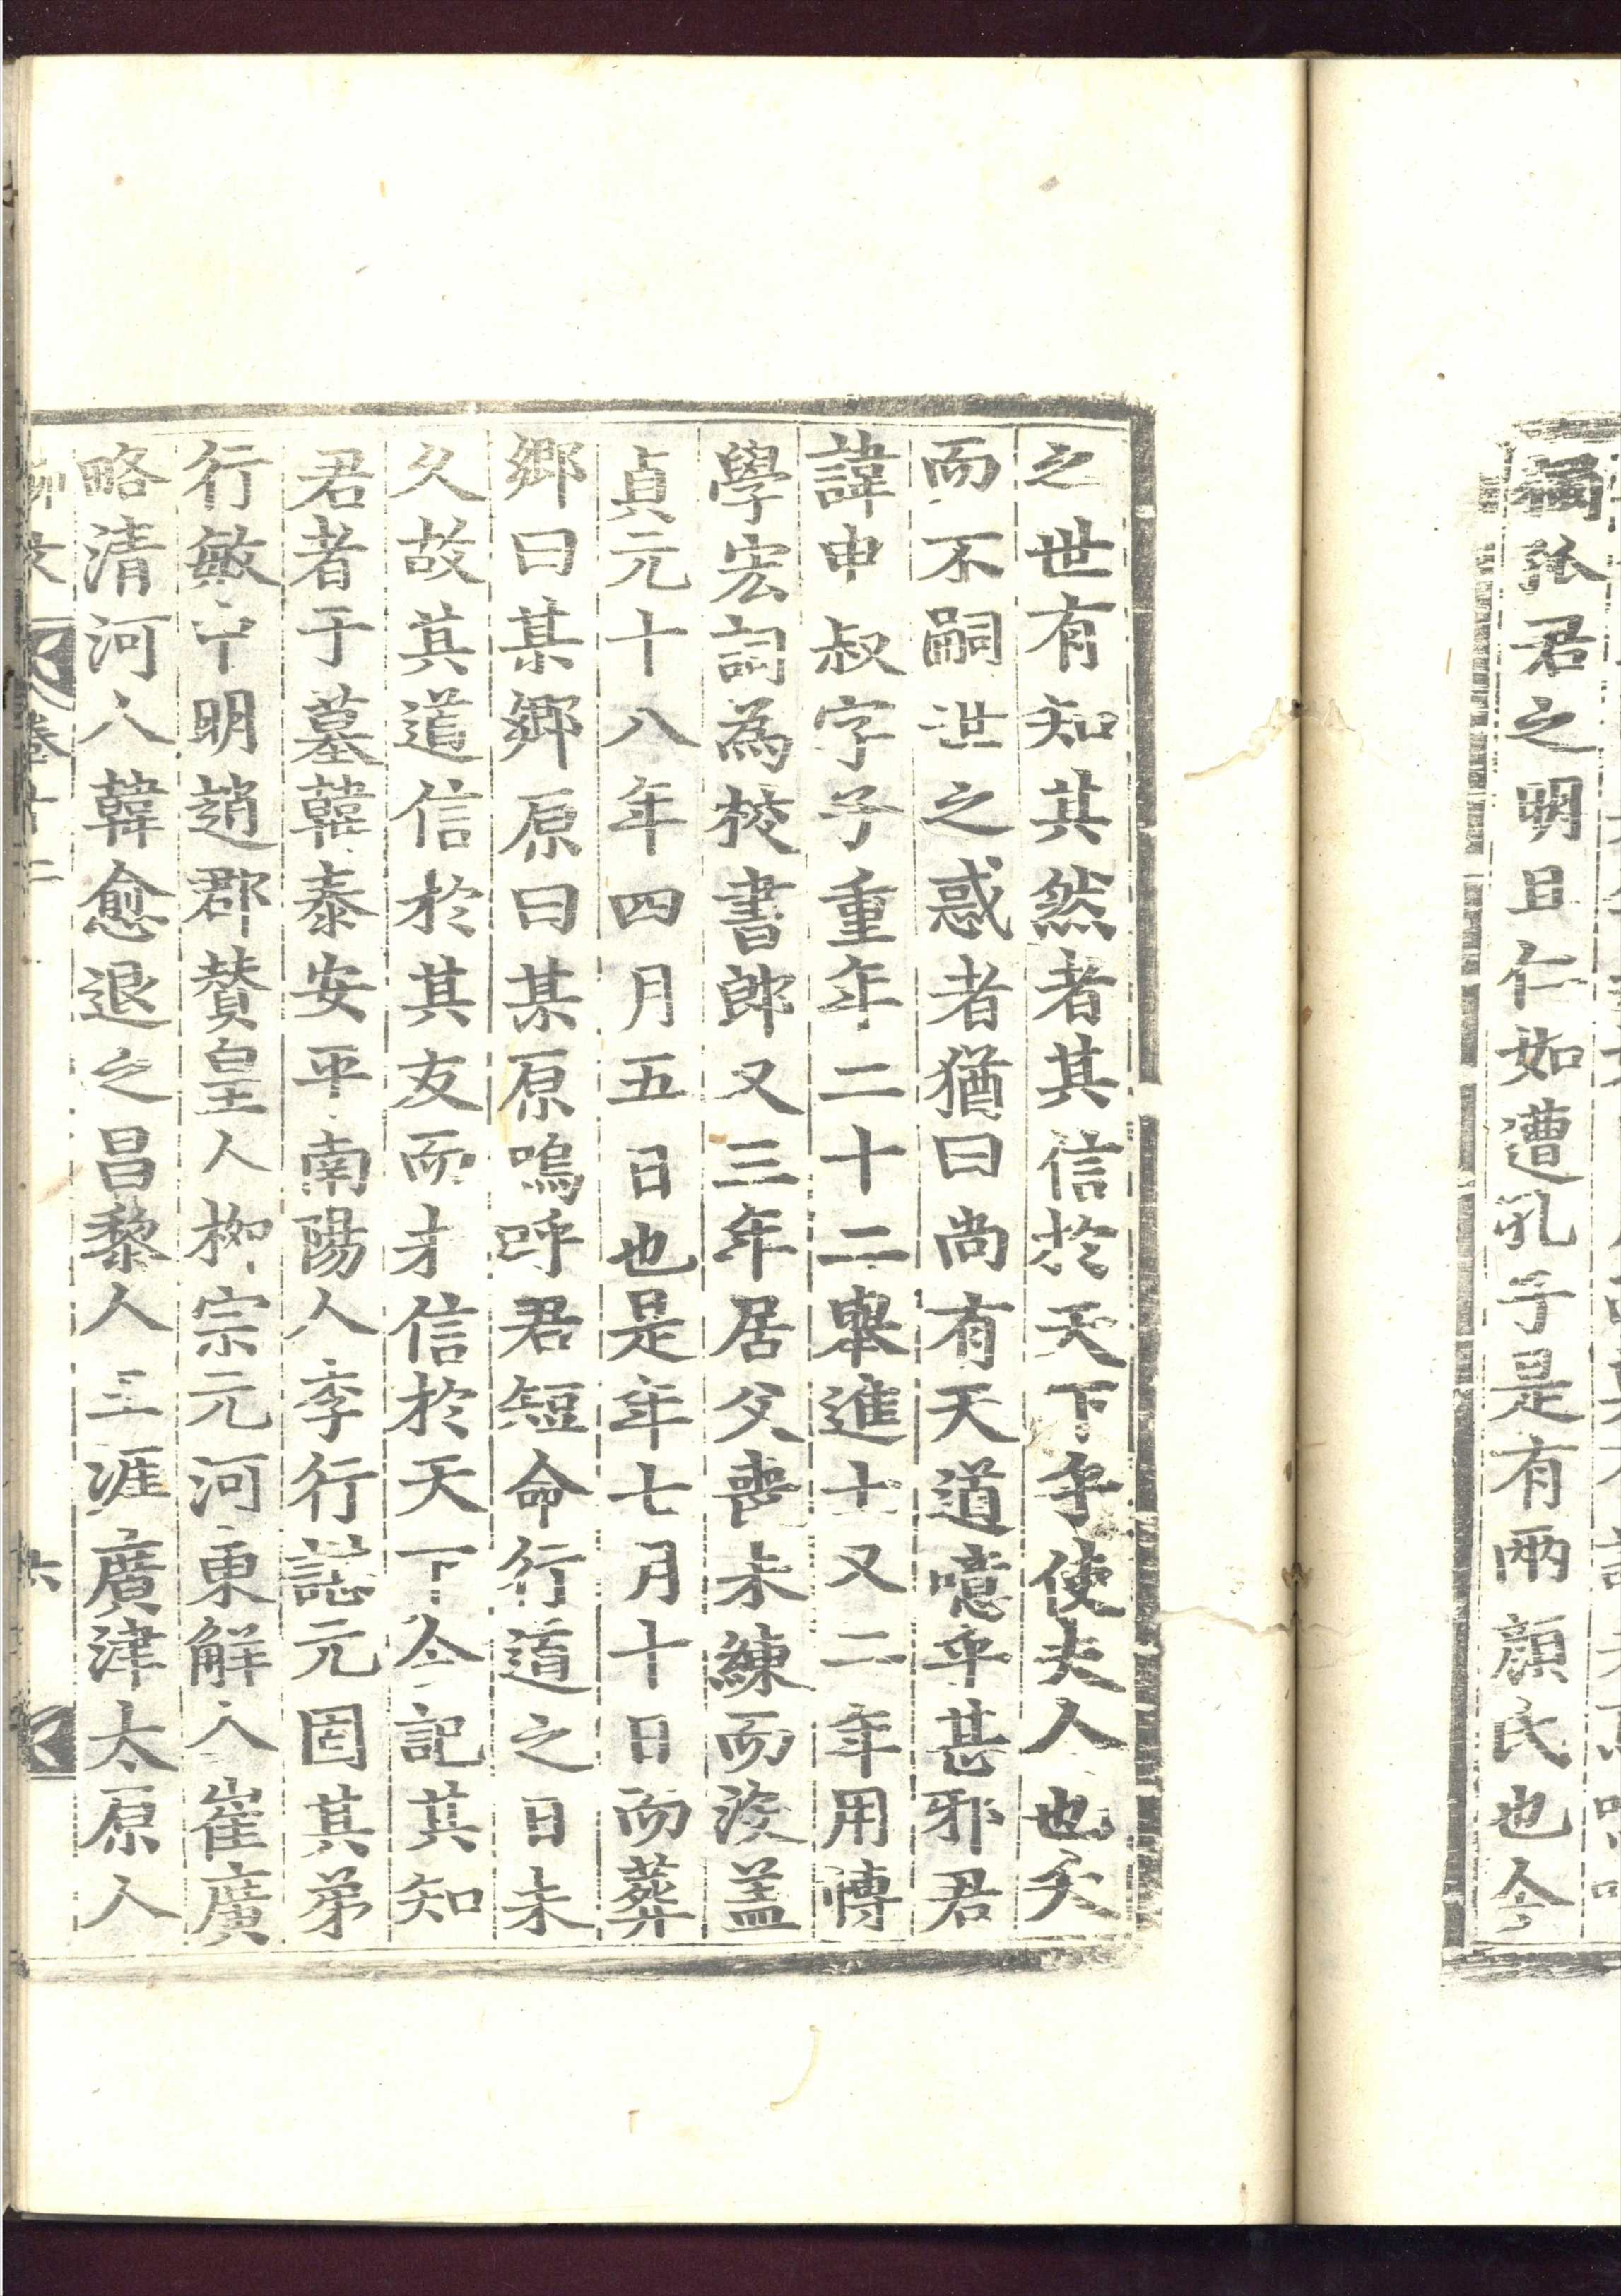 獨張君之明且仁如遭孔子是有兩顔氏也今
之世有知其然者其信於天下乎使夫人也夭
而不嗣世之惑者猶曰尚有天道噫乎甚邪君
諱申叔字子重年二十二舉進士又二年用博
學宏詞為校書郎又三年居父喪未練而沒盖
貞元十八年四月五日也是年七月十日而葬
鄉曰某鄉原曰某原嗚呼君短命行道之日未
久故其道信於其友而才信於天下今記其知
君者于墓韓泰安平南陽人李行諶元固其弟
行敏中明趙郡賛皇人柳宗元河東解人崔廣
略清河人韓愈退之昌黎人王涯廣津太原人
柳文 卷十二 六